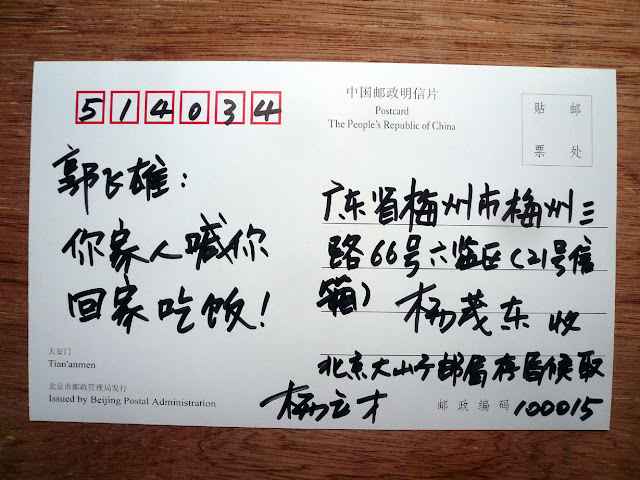 514034
中国邮政明信片
Postcard
The People's Republic of China
贴 邮
票 处
郭飞雄：
你家人喊你
回家吃饭！
广东省梅州市梅州三
路66号六监区（21号信
箱） 杨茂东 收
北京大山子邮局存局候取
杨立才
天安门
Tian'anmen
北京市邮政管理局发行
Issued by Beijing Postal Administration
邮政编码 100015